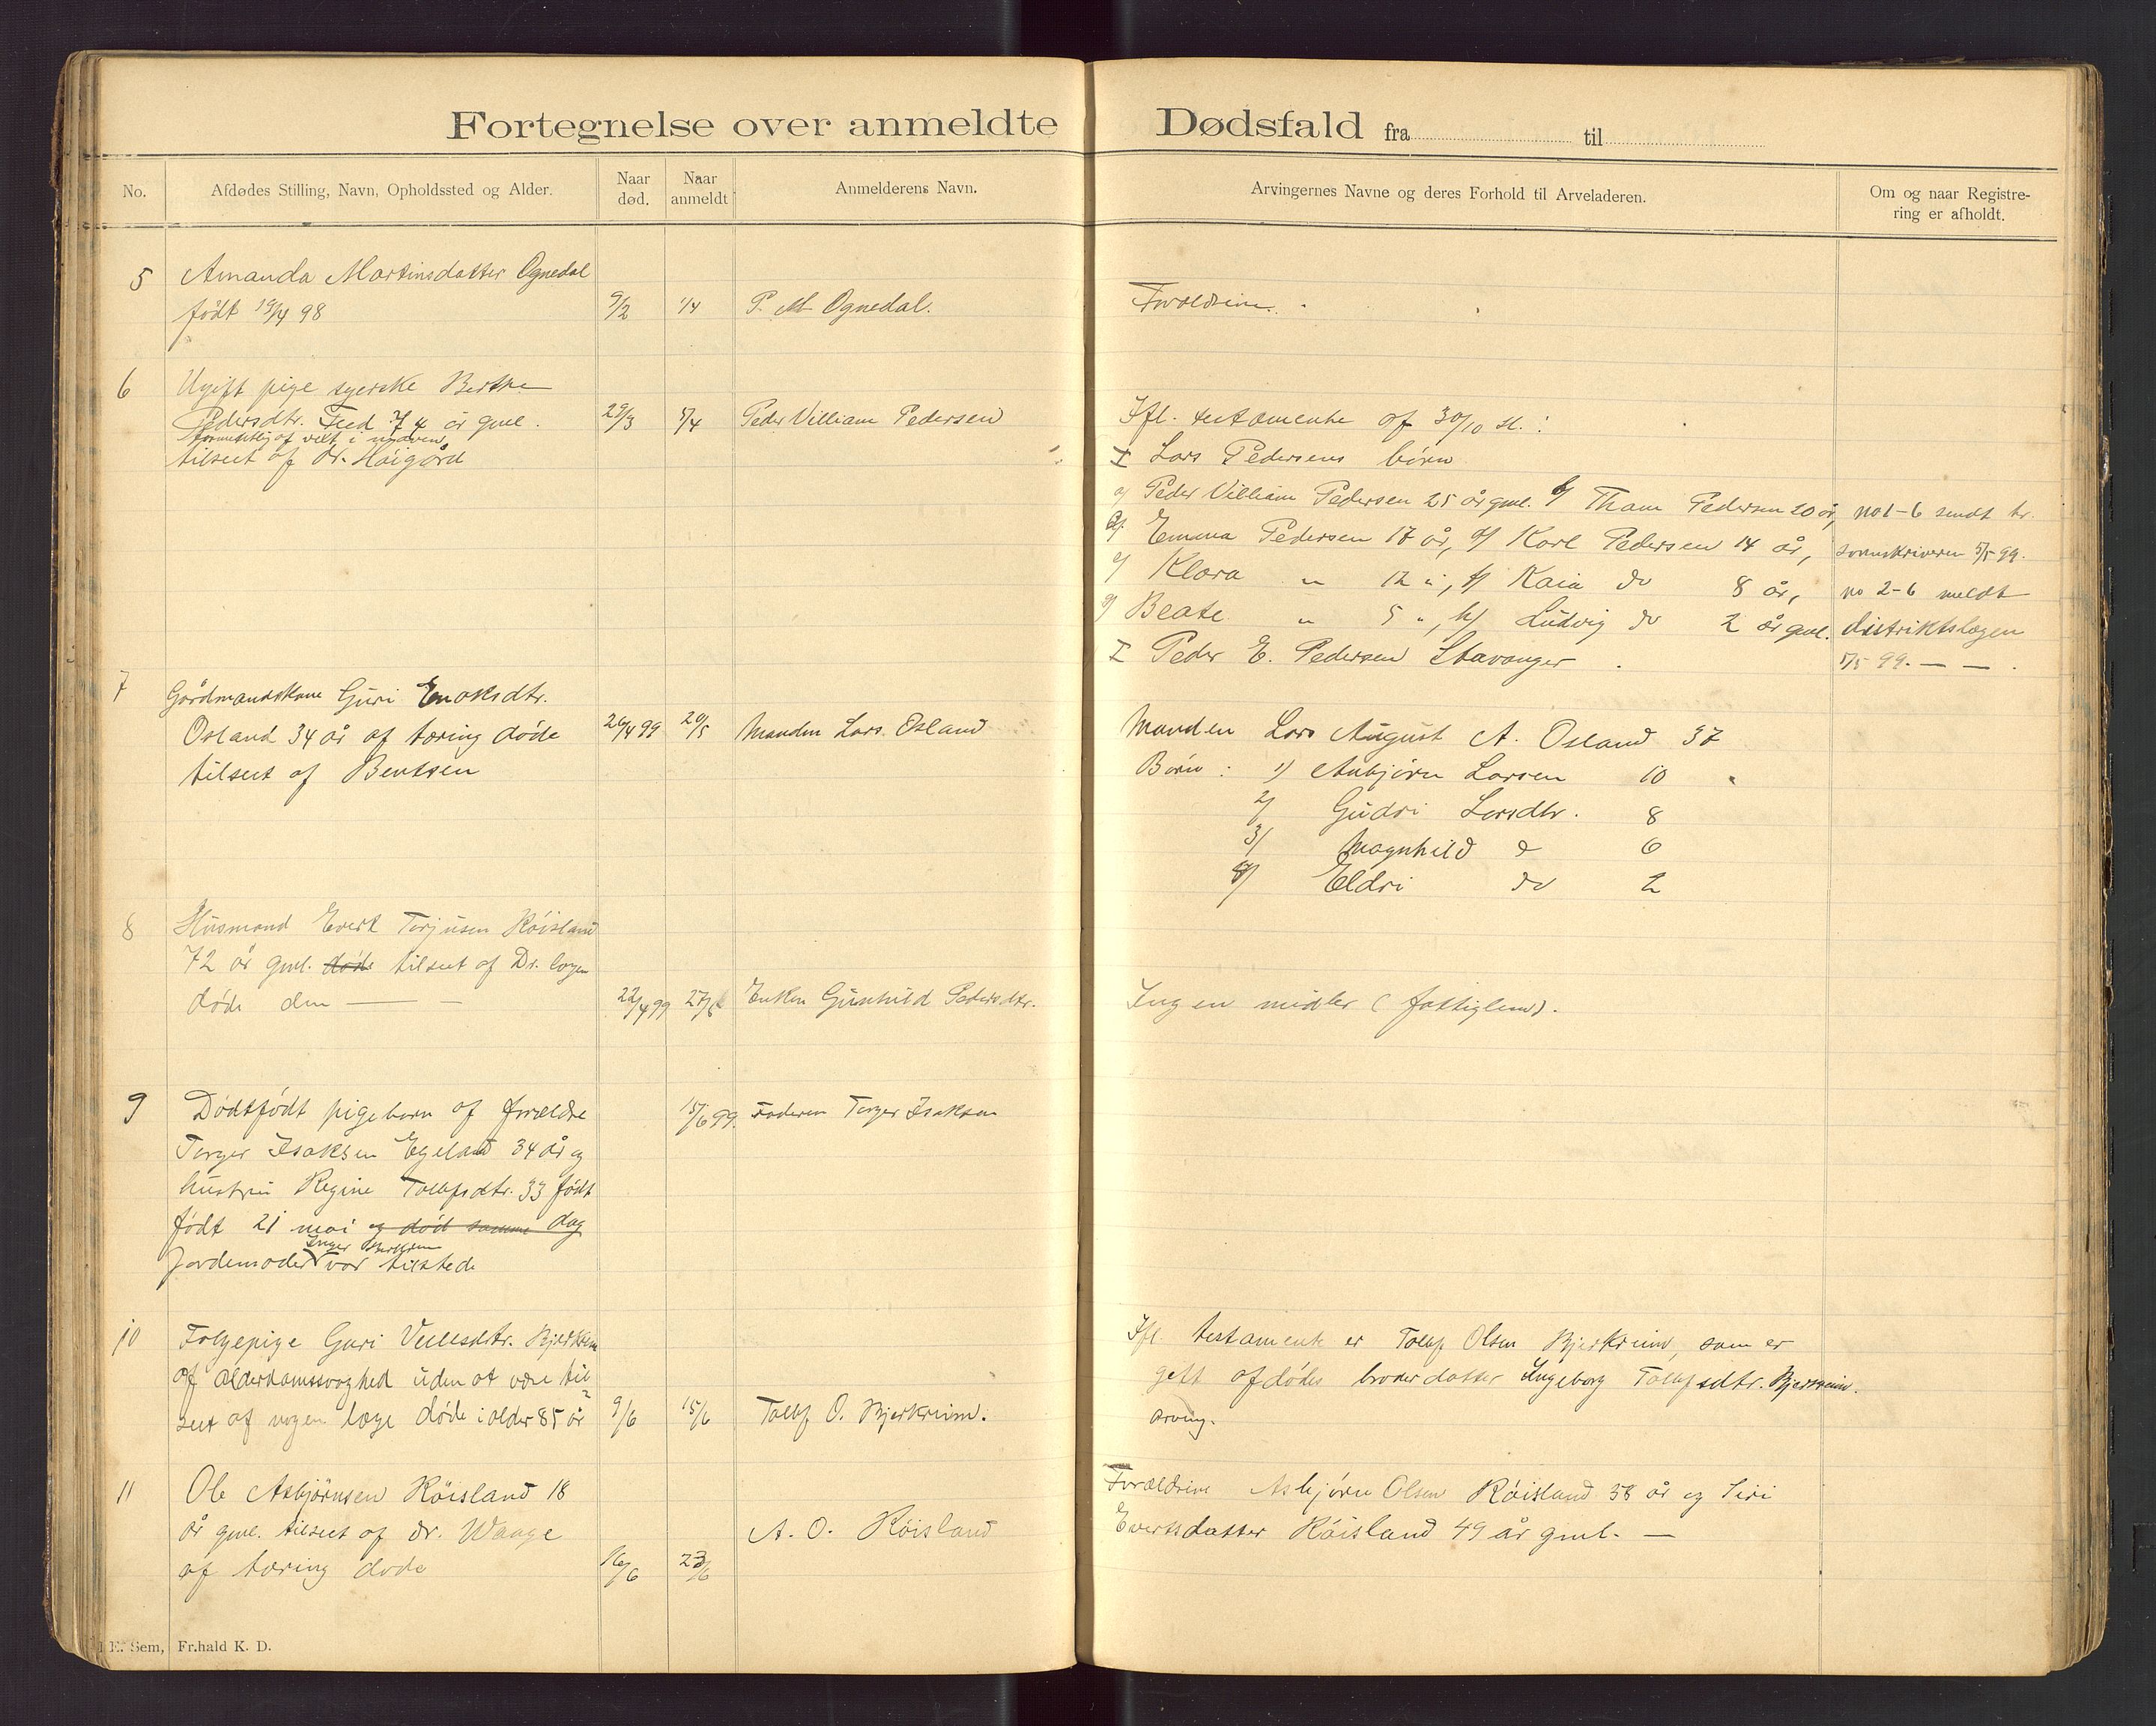 Fortegnelse over anmeldte Dødsfald fra til
No.
Afdødes Stilling, Navn, Opholdssted og Alder.
Naar død.
Naar anmeldt
Anmelderens Navn.
Arvingernes Navne og deres Forhold til Arveladeren.
Om og naar Registre-
ring er afholdt.
5 Amanda Martinsdatter Ognedal
født 19/4 98 9/2 1/4 P. M. Ognedal. Forældrene.
6 Ugift pige syerske Berthe
Pedersdtr. Tued 74 år gml. 29/3 5/4 Peder Villiam Pedersen Ifl. testamente af 30/10 :
af vekt i maven
tilseet af Dr. Høigård
I Lars Pedersens børn
a/ Peder Villiam Pedersen 25 år gml. b/ Tham Pedersen 20 år, no 1-6 sendt hr.
c/ Emma Pedersen 17 år, d/ Karl Pedersen 14 år, sorenskriveren 5/5 99.
e/ Klara " 12 ", f/ Kaia do 8 år, no 2-6 meldt
g/ Beate " 5 ", h/ Ludvig do 2 år gml. distriktslægen
I Peder E. Pedersen Stavanger. 5/5 99. — —
7 Gårdmandskone Guri Enoksdtr.
Osland 34 år af tæring døde 26/4 99 20/5 Manden Lars Osland Manden Lars August A. Osland 37
tilseet af Bentsen Børn : 1) Asbjørn Larsen 10 "
2/ Gudri Larsdtr. 8
3/ Magnhild do 6
4/ Eldri do 2
8 Husmand Evert Torjusen Røisland
72 år gml. døde tilseet af Dr. lægen
døde den — — 22/4 99 27/5 Enken Gunhild Pedersdtr. Ingen midler (fattiglem).
9 Dødtfødt pigebarn af forældre 15/6 99. Faderen Torger Isaksen
Torger Isaksen Egeland 34 år og
hustru Regine Tollefsdtr. 33 født
født 21 mai og død samme dag
Inger Bjerkrem
Jordemoder var tilstede
10 Følgepige Guri Vellesdtr. Bjerkrem Ifl. testamente er Tollef Olsen Bjerkreim, som er
af alderdomssvaghed uden at være til- gift afdødes broderdatter Ingeborg Tollefsdtr. Bjerkreim.
seet af nogen læge døde i alder 85 år 9/6 15/6 Tollef O. Bjerkreim. arving.
11 Ole Asbjørnsen Røisland 18 Forældrene Asbjørn Olsen Røisland 58 år og Siri
år gml. tilseet af dr. Waage A. O. Røisland Evertsdatter Røisland 49 år gml. —
af tæring døde 16/6 23/6
E. Sem, Fr.hald K. D.